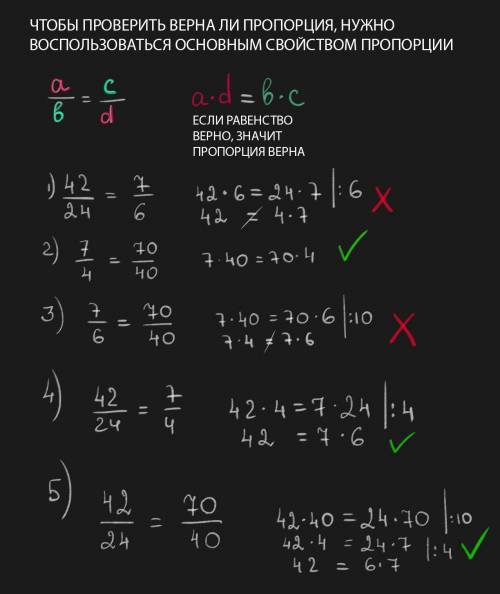 ЧТОБЫ ПРОВЕРИТЬ ВЕРНА ЛИ ПРОПОРЦИЯ, НУЖНО
ВОСПОЛЬЗОВАТЬСЯ ОСНОВНЫМ СВОЙСТВОМ ПРОПОРЦИИ
a/b = c/d a·d = b·c
ЕСЛИ РАВЕНСТВО
ВЕРНО, ЗНАЧИТ
ПРОПОРЦИЯ ВЕРНА
1) 42/24 = 7/6 42·6 = 24·7 |:6 X
42 ≠ 4·7
2) 7/4 = 70/40 7·40 = 70·4 ✓
3) 7/6 = 70/40 7·40 = 70·6 |:10 X
7·4 ≠ 7·6
4) 42/24 = 7/4 42·4 = 7·24 |:4
42 = 7·6 ✓
5) 42/24 = 70/40 42·40 = 24·70 |:10
42·4 = 24·7 |:4 ✓
42 = 6·7